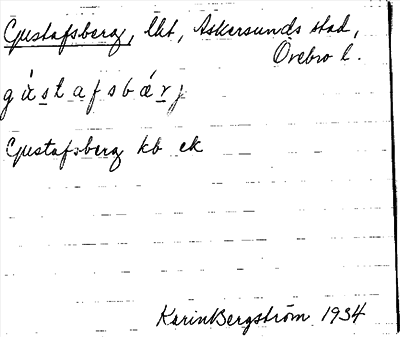 Gustafsberg, lht, Askersunds stad,
Örebro l.
gústafsbárj
Gustafsberg kb ek
Karin Bergström 1934